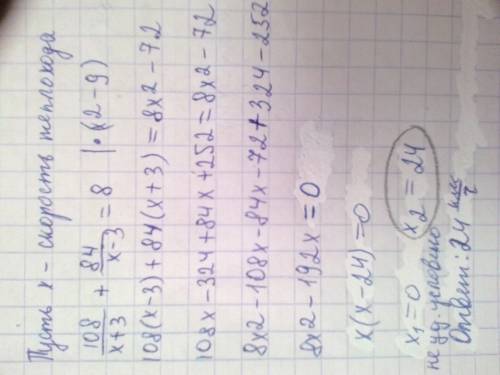 Пусть x - скорость теплохода
108/x+3 + 84/x-3 = 8 |•(x2-9)
108(x-3)+84(x+3)=8x2-72
108x-324+84x+252=8x2-72
8x2-108x-84x-72+324-252
8x2-192x=0
x(x-24)=0
x1=0 x2=24
не уд. условию
Ответ: 24 км/ч